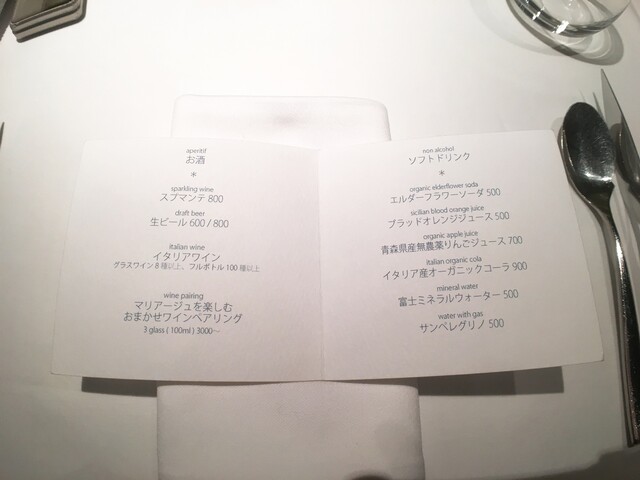 aperitif
お酒
*
sparkling wine
スプマンテ 800
draft beer
生ビール 600 / 800
italian wine
イタリアワイン
グラスワイン 8 種以上、フルボトル 100 種以上
wine pairing
マリアージュを楽しむ
おまかせワインペアリング
3 glass ( 100ml ) 3000～
non alcohol
ソフトドリンク
*
organic elderflower suda
エルダーフラワーソーダ 500
sicilian blood orange juice
ブラッドオレンジジュース 500
organic apple juice
青森県産無農薬りんごジュース 700
italian organic cola
イタリア産オーガニックコーラ 900
mineral water
富士ミネラルウォーター 500
water with gas
サンペレグリノ 500